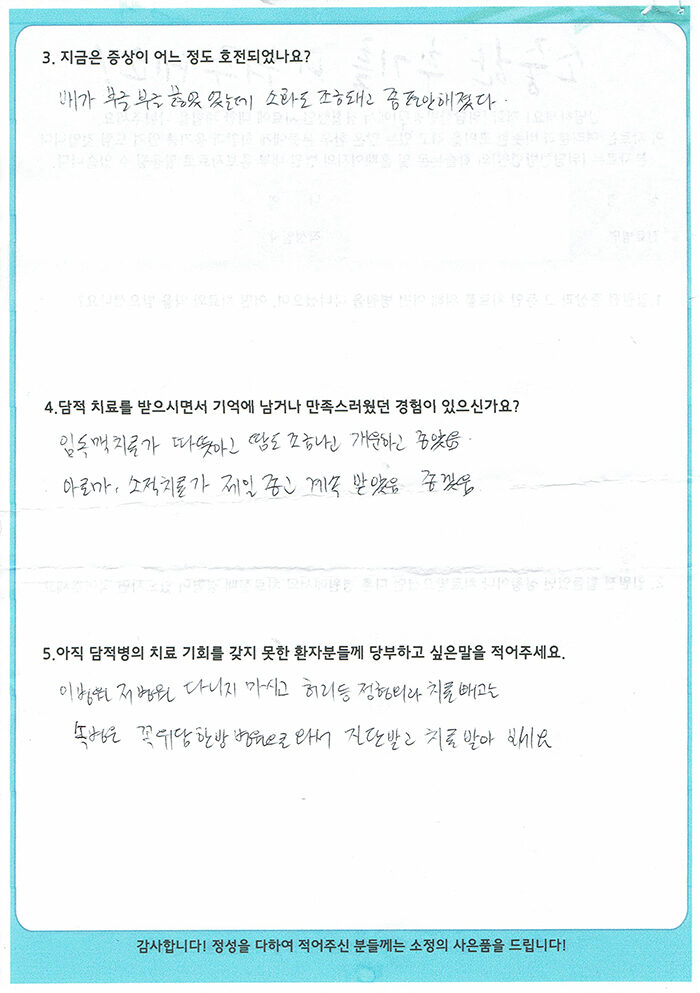 3. 지금은 증상이 어느 정도 호전되었나요?
배가 부글부글 끓었었는데 소화도 조금되고 좀 편안해졌다.
4.담적 치료를 받으시면서 기억에 남거나 만족스러웠던 경험이 있으신가요?
치료가 따뜻하고 땀도 조금나고 개운하고 좋았음.
아로마, 소적치료가 제일 좋고 계속 받았음 좋겠음
5.아직 담적병의 치료 기회를 갖지 못한 환자분들께 당부하고 싶은말을 적어주세요.
이병원 저병원 다니지 마시고 허리등 정형외과 치료빼고는
속병은 꼭 위담한방병원으로 와서 진단받고 치료 받아 보세요
감사합니다! 정성을 다하여 적어주신 분들께는 소정의 사은품을 드립니다!